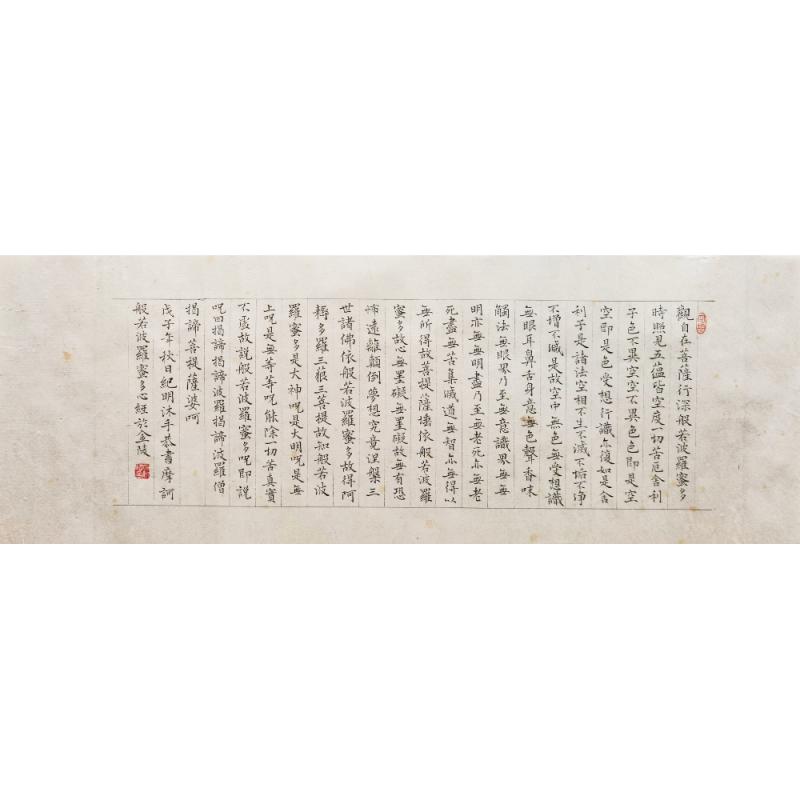 觀自在菩薩行深般若波羅蜜多
時照見五蘊皆空度一切苦厄舍利
子色不異空空不異色色即是空
空即是色受想行識亦復如是舍
利子是諸法空相不生不滅不垢不净
不增不減是故空中無色無受想識
無眼耳鼻舌身意無色聲香味
觸法無眼界乃至無意識界無無
明亦無無明盡乃至無老死亦無老
死盡無苦集滅道無智亦無得以
無所得故菩提薩埵依般若波羅
蜜多故心無罣礙無罣礙故無有恐
怖遠離顛倒夢想究竟涅槃三
世諸佛依般若波羅蜜多故得阿
耨多羅三藐三菩提故知般若波
羅蜜多是大神呪是大明呪是無
上呪是無等等呪能除一切苦真實
不虛故説般若波羅蜜多呪即説
呪曰揭諦揭諦波羅揭諦波羅僧
揭諦菩提薩婆呵
戊子年秋日紀明沐手恭書摩訶
般若波羅蜜多心經於金陵